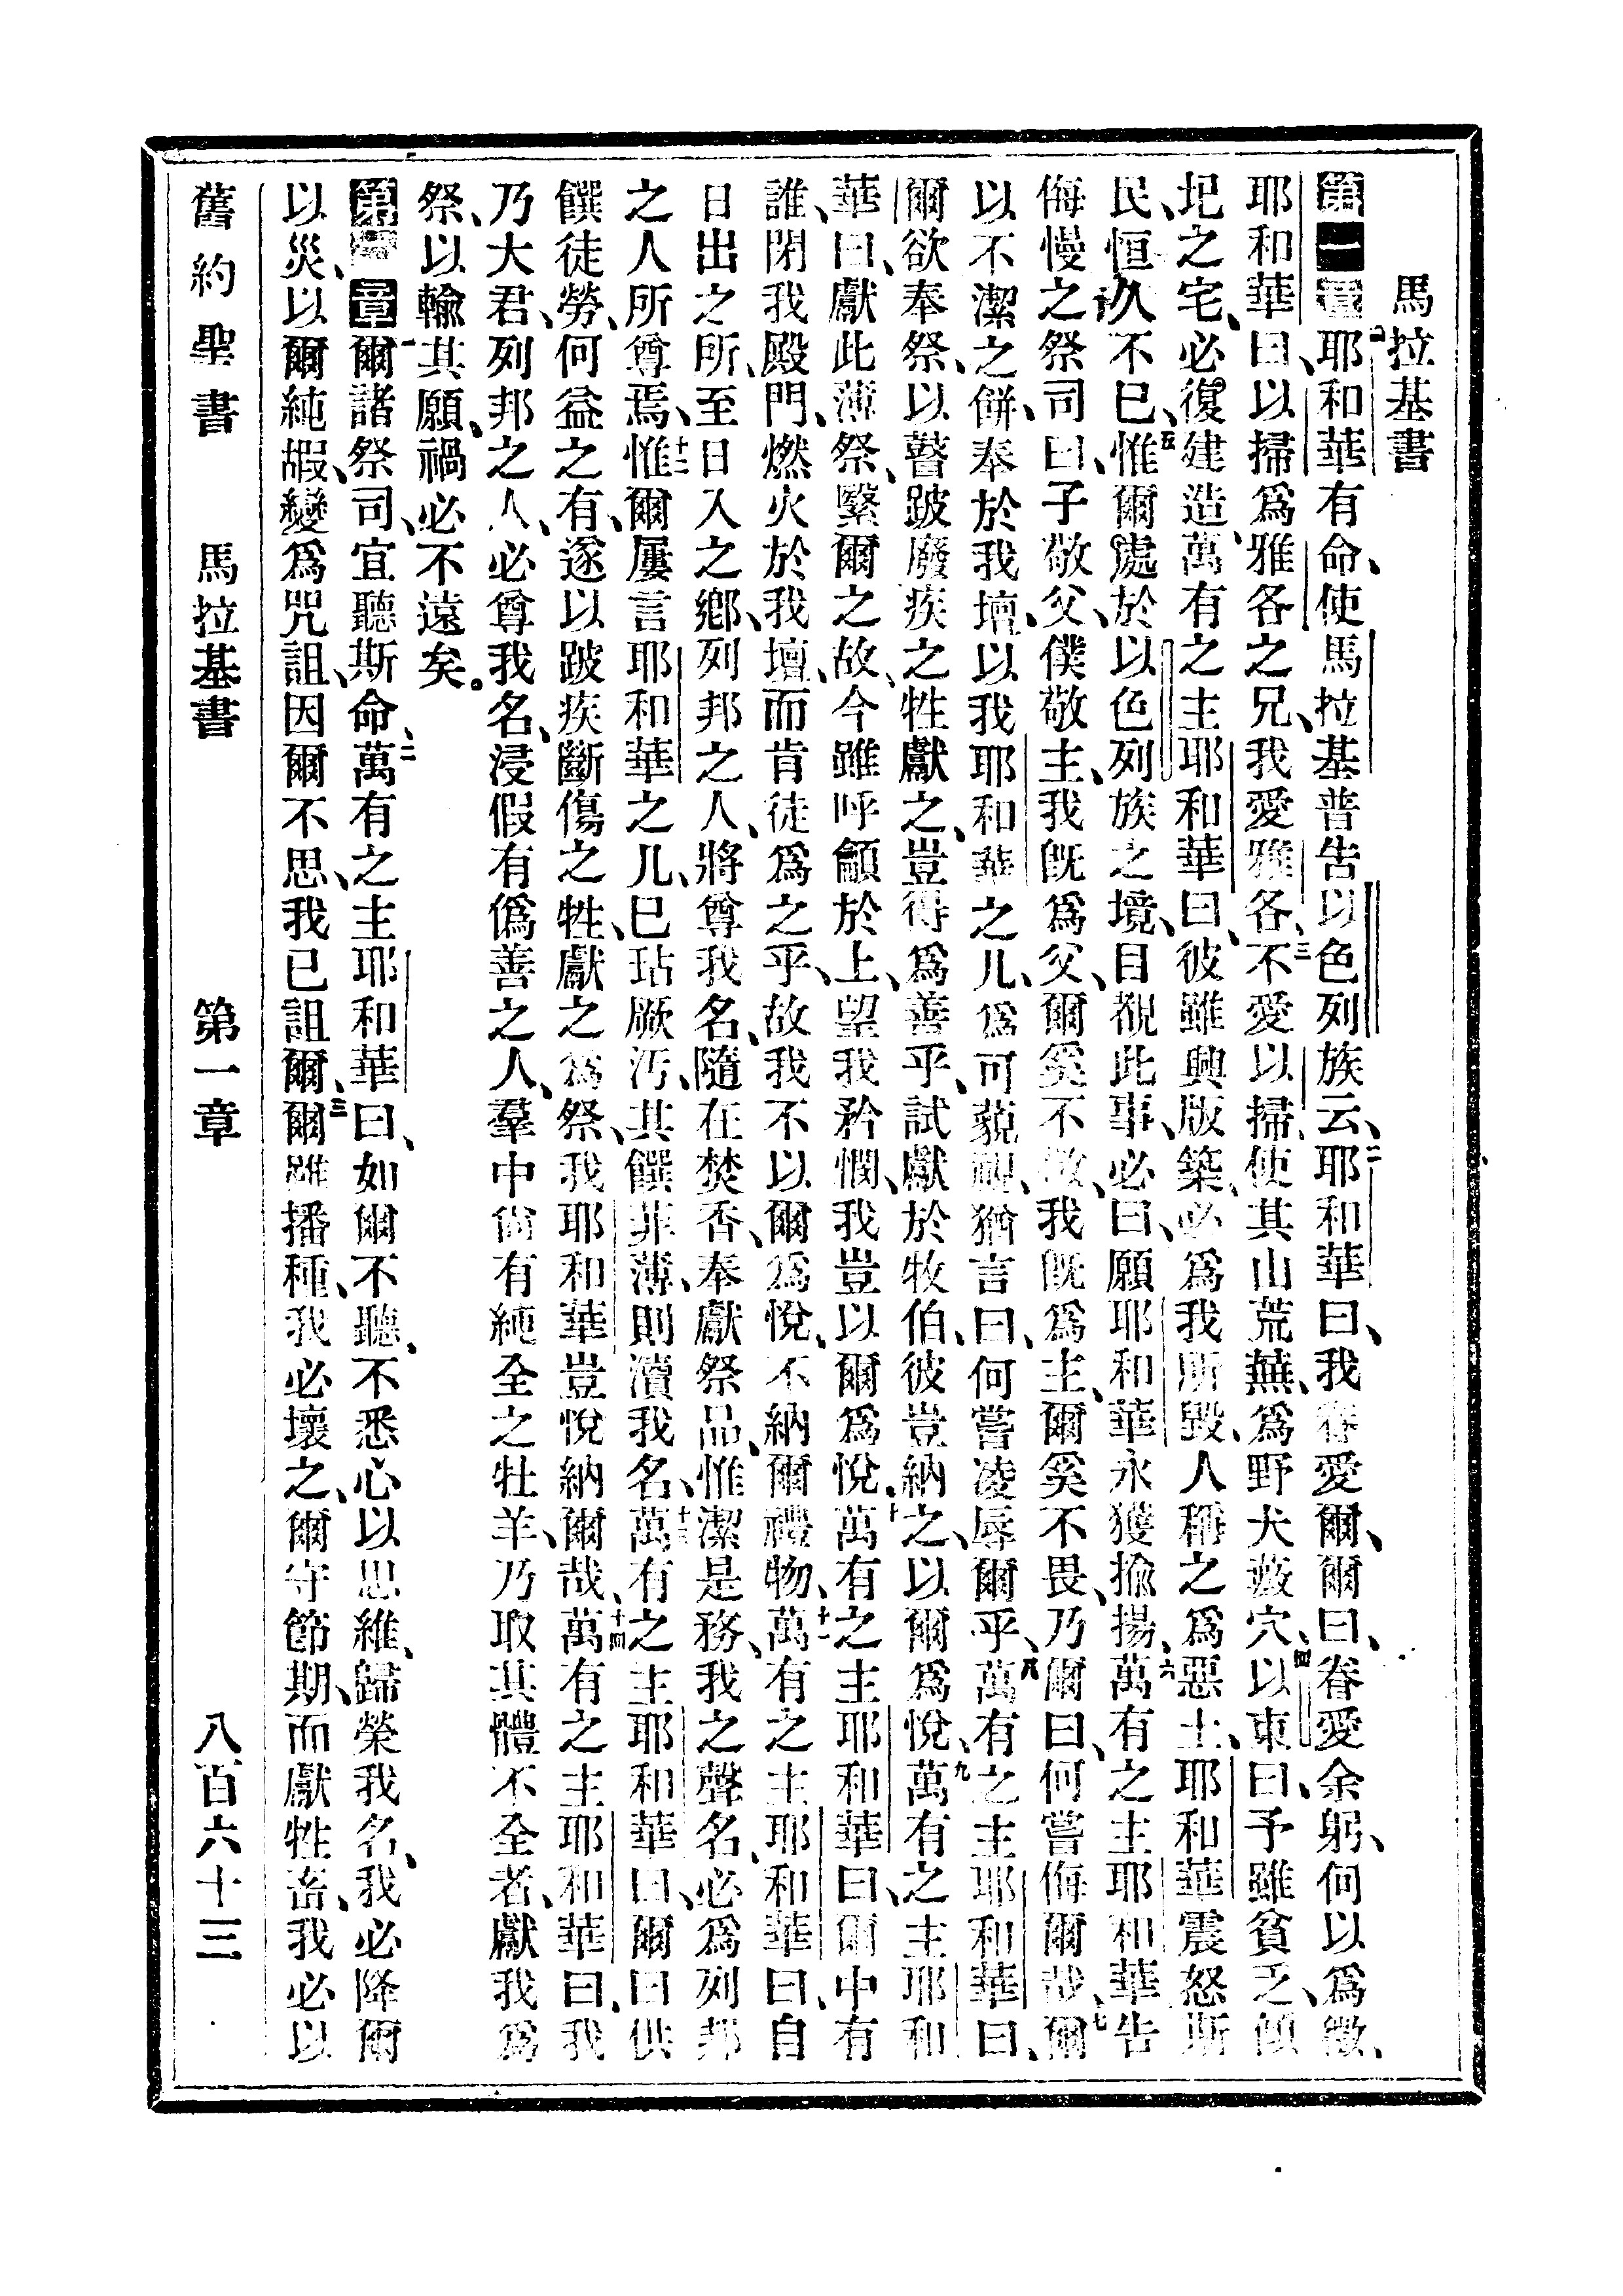 馬拉基書
第一章一耶和華有命、使馬拉基普告以色列族云、二耶和華曰、我眷愛爾、爾曰、眷愛余躬、何以爲徵、
耶和華曰、以掃爲雅各之兄、我愛雅各、三不愛以掃、使其山荒蕪、爲野犬薮穴、四以東曰、予雖貧乏、傾
圯之宅、必復建造、萬有之主耶和華曰、彼雖興版築、必爲我所毀、人稱之爲惡土、耶和華震怒斯
民、恒久不已、五惟爾處於以色列族之境、目覩此事、必曰、願耶和華永獲揄揚、六萬有之主耶和華告
侮慢之祭司曰、子敬父、僕敬主、我旣爲父、爾奚不敬、我旣爲主、爾奚不畏、乃爾曰、何嘗侮爾哉、七爾
以不潔之餅、奉於我壇、以我耶和華之几、爲可藐視、猶言曰、何嘗凌辱爾乎、八萬有之主耶和華曰、
爾欲奉祭、以瞽跛廢疾之牲獻之、豈得爲善乎、試獻於牧伯、彼豈納之、以爾爲悅、九萬有之主耶和
華曰、獻此薄祭、繄爾之故、今雖呼龥於上、望我矜憫、我豈以爾爲悅、十萬有之主耶和華曰、爾中有
誰、閉我殿門、燃火於我壇、而肯徒爲之乎、故我不以爾爲悅、不納爾禮物、十一萬有之主耶和華曰、自
日出之所、至日入之鄕、列邦之人、將尊我名、隨在焚香、奉獻祭品、惟潔是務、我之聲名、必爲列邦
之人所尊焉、十二惟爾屢言耶和華之几、已玷厥汚、其饌菲薄、則瀆我名、十三萬有之主耶和華曰、爾曰供
饌徒勞、何益之有、遂以跛疾斷傷之牲、獻之爲祭、我耶和華豈悅納爾哉、十四萬有之主耶和華曰、我
乃大君、列邦之人、必尊我名、浸假有僞善之人、羣中尙有純全之牡羊、乃取其體不全者、獻我爲
祭、以輸其願、禍必不遠矣。
第二章一爾諸祭司、宜聽斯命、二萬有之主耶和華曰、如爾不聽、不悉心以思維、歸榮我名、我必降爾
以災、以爾純嘏、變爲咒詛、因爾不思、我已詛爾、三爾雖播種、我必壞之、爾守節期、而獻牲畜、我必以
舊約聖書 馬拉基書 第一章 八百六十三